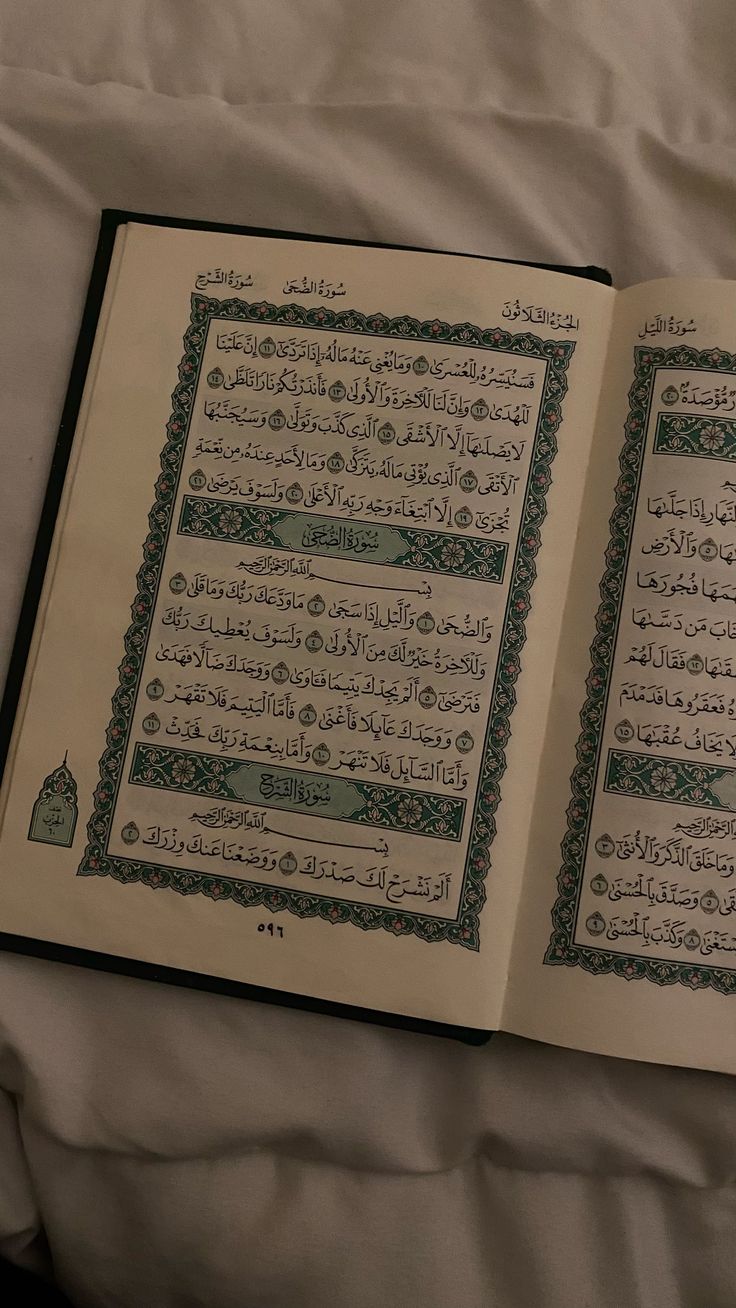 سُورَةُ اللَّيْلِ
مُّؤْصَدَةٌ ٢٠
إِذَا جَلَّىٰهَا
٥ وَٱلْأَرْضِ
فُجُورَهَا
خَابَ مَن دَسَّىٰهَا
١٢ فَقَالَ لَهُمْ
فَعَقَرُوهَا فَدَمْدَمَ
يَخَافُ عُقْبَٰهَا ١٥
ٱلرَّحْمَٰنِ ٱلرَّحِيمِ
وَمَا خَلَقَ ٱلذَّكَرَ وَٱلْأُنثَىٰٓ ٣
٥ وَصَدَّقَ بِٱلْحُسْنَىٰ ٦
٨ وَكَذَّبَ بِٱلْحُسْنَىٰ ٩
الجُزْءُ الثَّلَاثُونَ سُورَةُ الضُّحَىٰ سُورَةُ الشَّرْحِ
فَسَنُيَسِّرُهُۥ لِلْعُسْرَىٰ ١٠ وَمَا يُغْنِى عَنْهُ مَالُهُۥٓ إِذَا تَرَدَّىٰٓ ١١ إِنَّ عَلَيْنَا
لَلْهُدَىٰ ١٢ وَإِنَّ لَنَا لَلْءَاخِرَةَ وَٱلْأُولَىٰ ١٣ فَأَنذَرْتُكُمْ نَارًا تَلَظَّىٰ ١٤
لَا يَصْلَىٰهَآ إِلَّا ٱلْأَشْقَى ١٥ ٱلَّذِى كَذَّبَ وَتَوَلَّىٰ ١٦ وَسَيُجَنَّبُهَا
ٱلْأَتْقَى ١٧ ٱلَّذِى يُؤْتِى مَالَهُۥ يَتَزَكَّىٰ ١٨ وَمَا لِأَحَدٍ عِندَهُۥ مِن نِّعْمَةٍ
تُجْزَىٰٓ ١٩ إِلَّا ٱبْتِغَآءَ وَجْهِ رَبِّهِ ٱلْأَعْلَىٰ ٢٠ وَلَسَوْفَ يَرْضَىٰ ٢١
سُورَةُ الضُّحَىٰ
بِسْمِ ٱللَّهِ ٱلرَّحْمَٰنِ ٱلرَّحِيمِ
وَٱلضُّحَىٰ ١ وَٱلَّيْلِ إِذَا سَجَىٰ ٢ مَا وَدَّعَكَ رَبُّكَ وَمَا قَلَىٰ ٣
وَلَلْءَاخِرَةُ خَيْرٌ لَّكَ مِنَ ٱلْأُولَىٰ ٤ وَلَسَوْفَ يُعْطِيكَ رَبُّكَ
فَتَرْضَىٰٓ ٥ أَلَمْ يَجِدْكَ يَتِيمًا فَـَٔاوَىٰ ٦ وَوَجَدَكَ ضَآلًّا فَهَدَىٰ
٧ وَوَجَدَكَ عَآئِلًا فَأَغْنَىٰ ٨ فَأَمَّا ٱلْيَتِيمَ فَلَا تَقْهَرْ ٩
وَأَمَّا ٱلسَّآئِلَ فَلَا تَنْهَرْ ١٠ وَأَمَّا بِنِعْمَةِ رَبِّكَ فَحَدِّثْ ١١
سُورَةُ الشَّرْحِ
بِسْمِ ٱللَّهِ ٱلرَّحْمَٰنِ ٱلرَّحِيمِ
أَلَمْ نَشْرَحْ لَكَ صَدْرَكَ ١ وَوَضَعْنَا عَنكَ وِزْرَكَ ٢
نصف
الحزب
٦٠
٥٩٦